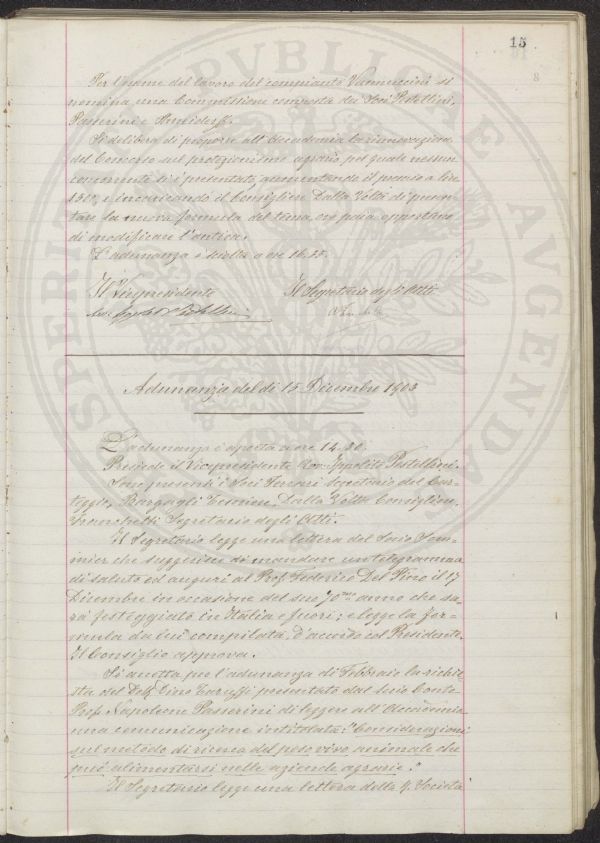 15
8
Per l'esame del lavoro del compianto Vannuccini si
nomina una Commissione composta dei Soci Pestellini,
Passerini e
Si delibera di proporre all'Accademia la rinnovazione
del Concorso sul protezionismo agrario, pel quale nessun
concorrente si è presentato, aumentando il premio a lire
e incaricando il Consigliere Dalla Volta di presen-
tare la nuova formula del tema, ove paia opportuno
di modificare l'antica.
L'adunanza è sciolta a ore 16.25.
Il Vicepresidente Il Segretario degli Atti
Adunanza del dì 15 Dicembre 1903
L'adunanza è aperta a ore 14.30.
Presiede il Vicepresidente Ippolito Pestellini.
Sono presenti i Soci Ferrari Segretario del Car-
teggio, Bargagli Tesoriere, Dalla Volta Consigliere,
Franchetti Segretario degli Atti.
Il Segretario legge una lettera del Socio Som-
mier che suggerisce di mandare un telegramma
di saluto ed auguri al Prof. Federico Del Pino il 17
Dicembre in occasione del suo 70mo anno che sa-
rà festeggiato in Italia e fuori; e legge la for-
mula da lui compilata, d'accordo col Presidente.
Il Consiglio approva.
Si accetta per l'adunanza di Febbraio la richie-
sta del Dott. Gino presentato dal Socio Conte
Prof. Napoleone Passerini di leggere all'Accademia
una comunicazione intitolata: "Considerazioni
sul metodo di ricerca del peso vivo animale che
può alimentarsi nelle aziende agrarie."
Il Segretario legge una lettera della R. Società
PVBLICAE
PROSPERITATI
AVGENDAE